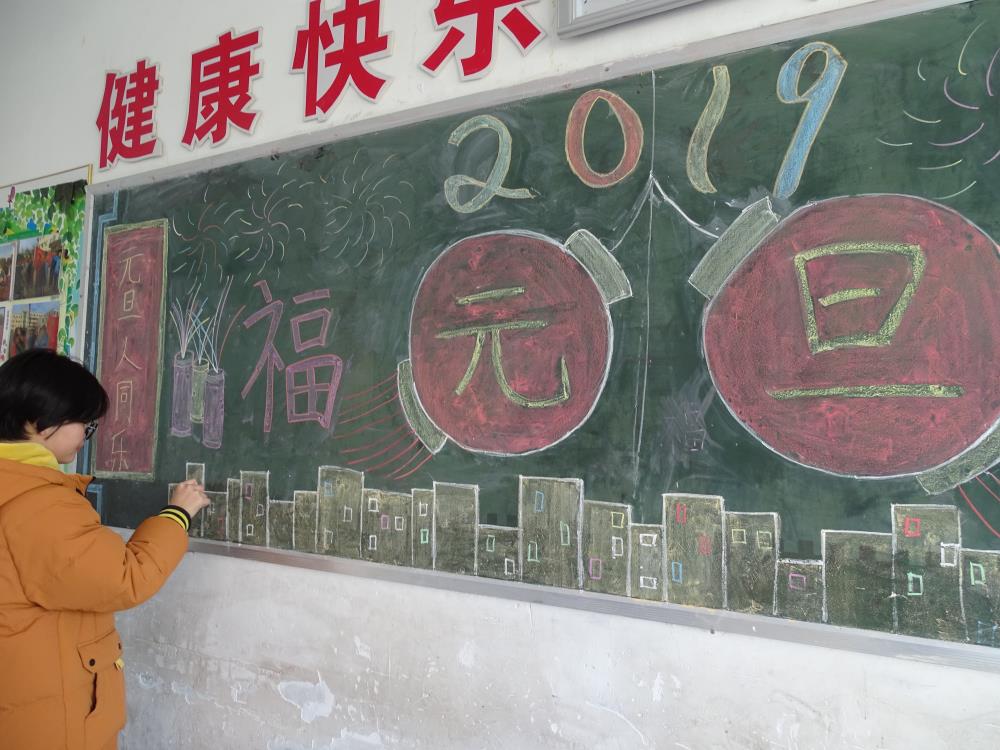 健康快乐
2019
元旦人同乐
福
元旦